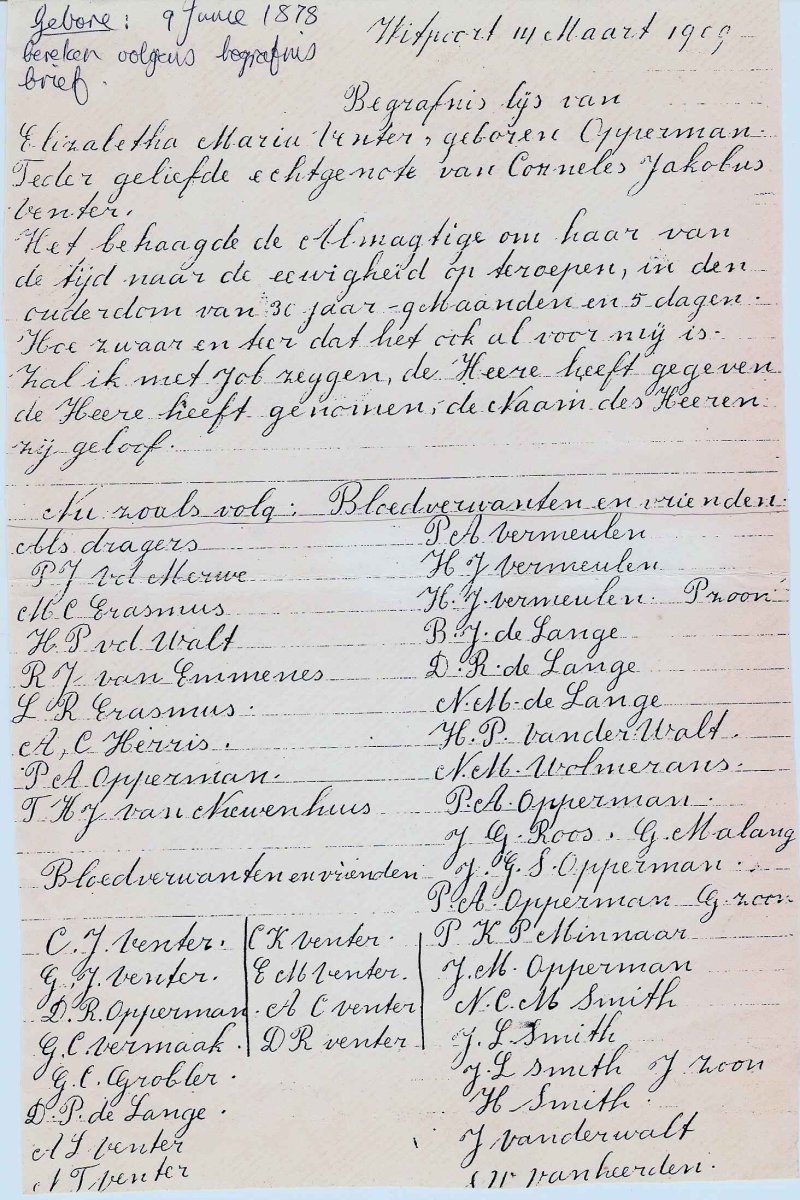 Gebore: 9 Junie 1878
bereken volgens begrafnis
brief.
Witpoort 14 Maart 1909
Begrafnis lijs van
Elizabetha Maria Venter, geboren Opperman.
Teder geliefde echtgenote van Corneles Jakobus
Venter.
Het behaagde de Almagtige om haar van
de tijd naar de eewigheid op teroepen, in den
ouderdom van 30 jaar - 9 Maanden en 5 dagen.
Hoe zwaar en teer dat het ook al voor mij is.
Zal ik met Job zeggen, de Heere heeft gegeven
de Heere heeft genomen, de Naam des Heeren
zij geloof.
Nu zoals volg: Bloedverwanten en vrienden.
Als dragers
P J vd Merwe
M C Erasmus
H P vd Walt
R J van Emmenes
L R Erasmus.
A, C Herris.
P A Opperman.
T H J van Niewenhuus
Bloedverwanten en vrienden
C. J. Venter.
G. J. Venter.
D. R. Opperman.
G. C. Vermaak.
G. C. Grobler.
D. P. de Lange.
A S Venter
C K Venter.
E M Venter.
A C Venter
D R Venter
P A Vermeulen
H J Vermeulen
H. J. Vermeulen. P zoon
B. J. de Lange
D. R. de Lange
N. M. de Lange
H. P. Vander Walt.
N. M. Wolmerans.
P. A. Opperman.
J G. Roos. G. Malang
J. G. S. Opperman.
P. A. Opperman G. zoon
P K P Minnaar
J. M. Opperman
N. C. M Smith
J. L Smith
J. L Smith J zoon
H Smith.
J vanderwalt
vanheerden.